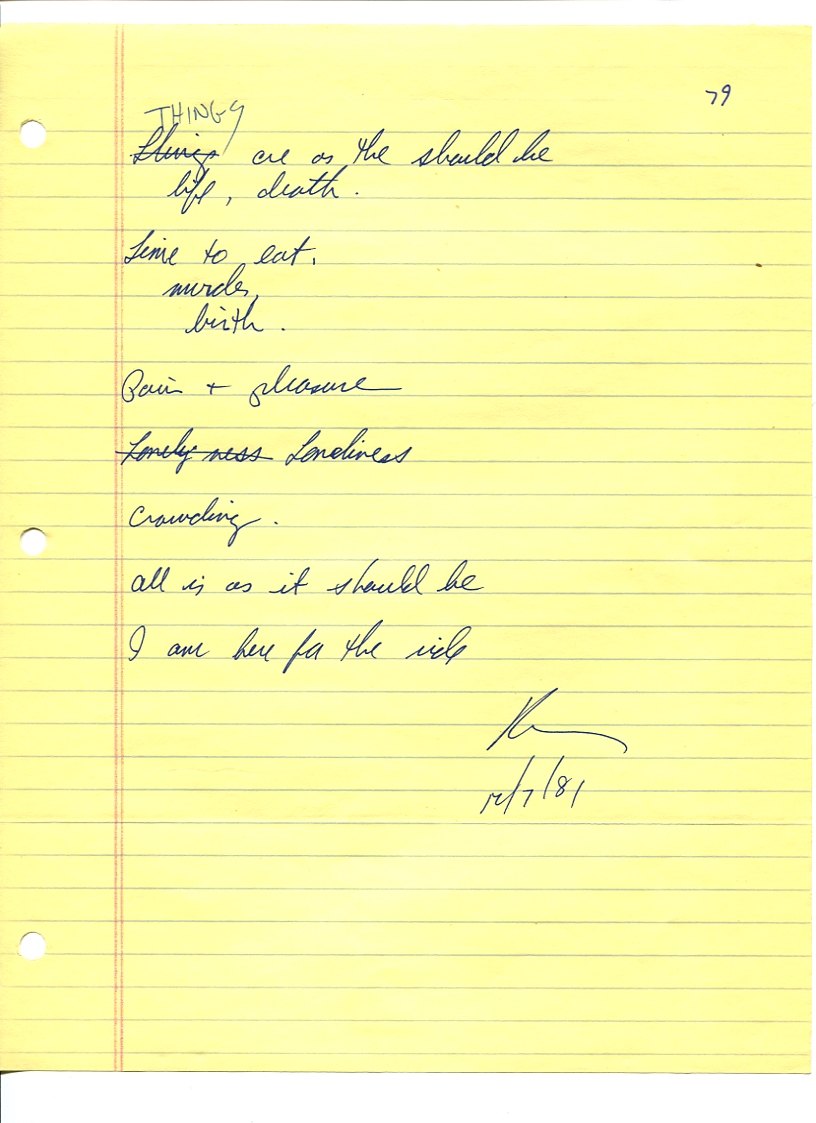 79
THINGS
things are as the should be
life, death.
time to eat,
murder,
birth.
Pain + pleasure
Lonelyness Loneliness
crowding.
all is as it should be
I am here for the ride
12/7/81